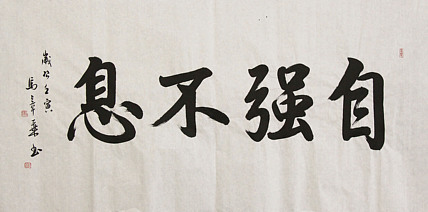 自强不息
岁次壬寅
马章乘书